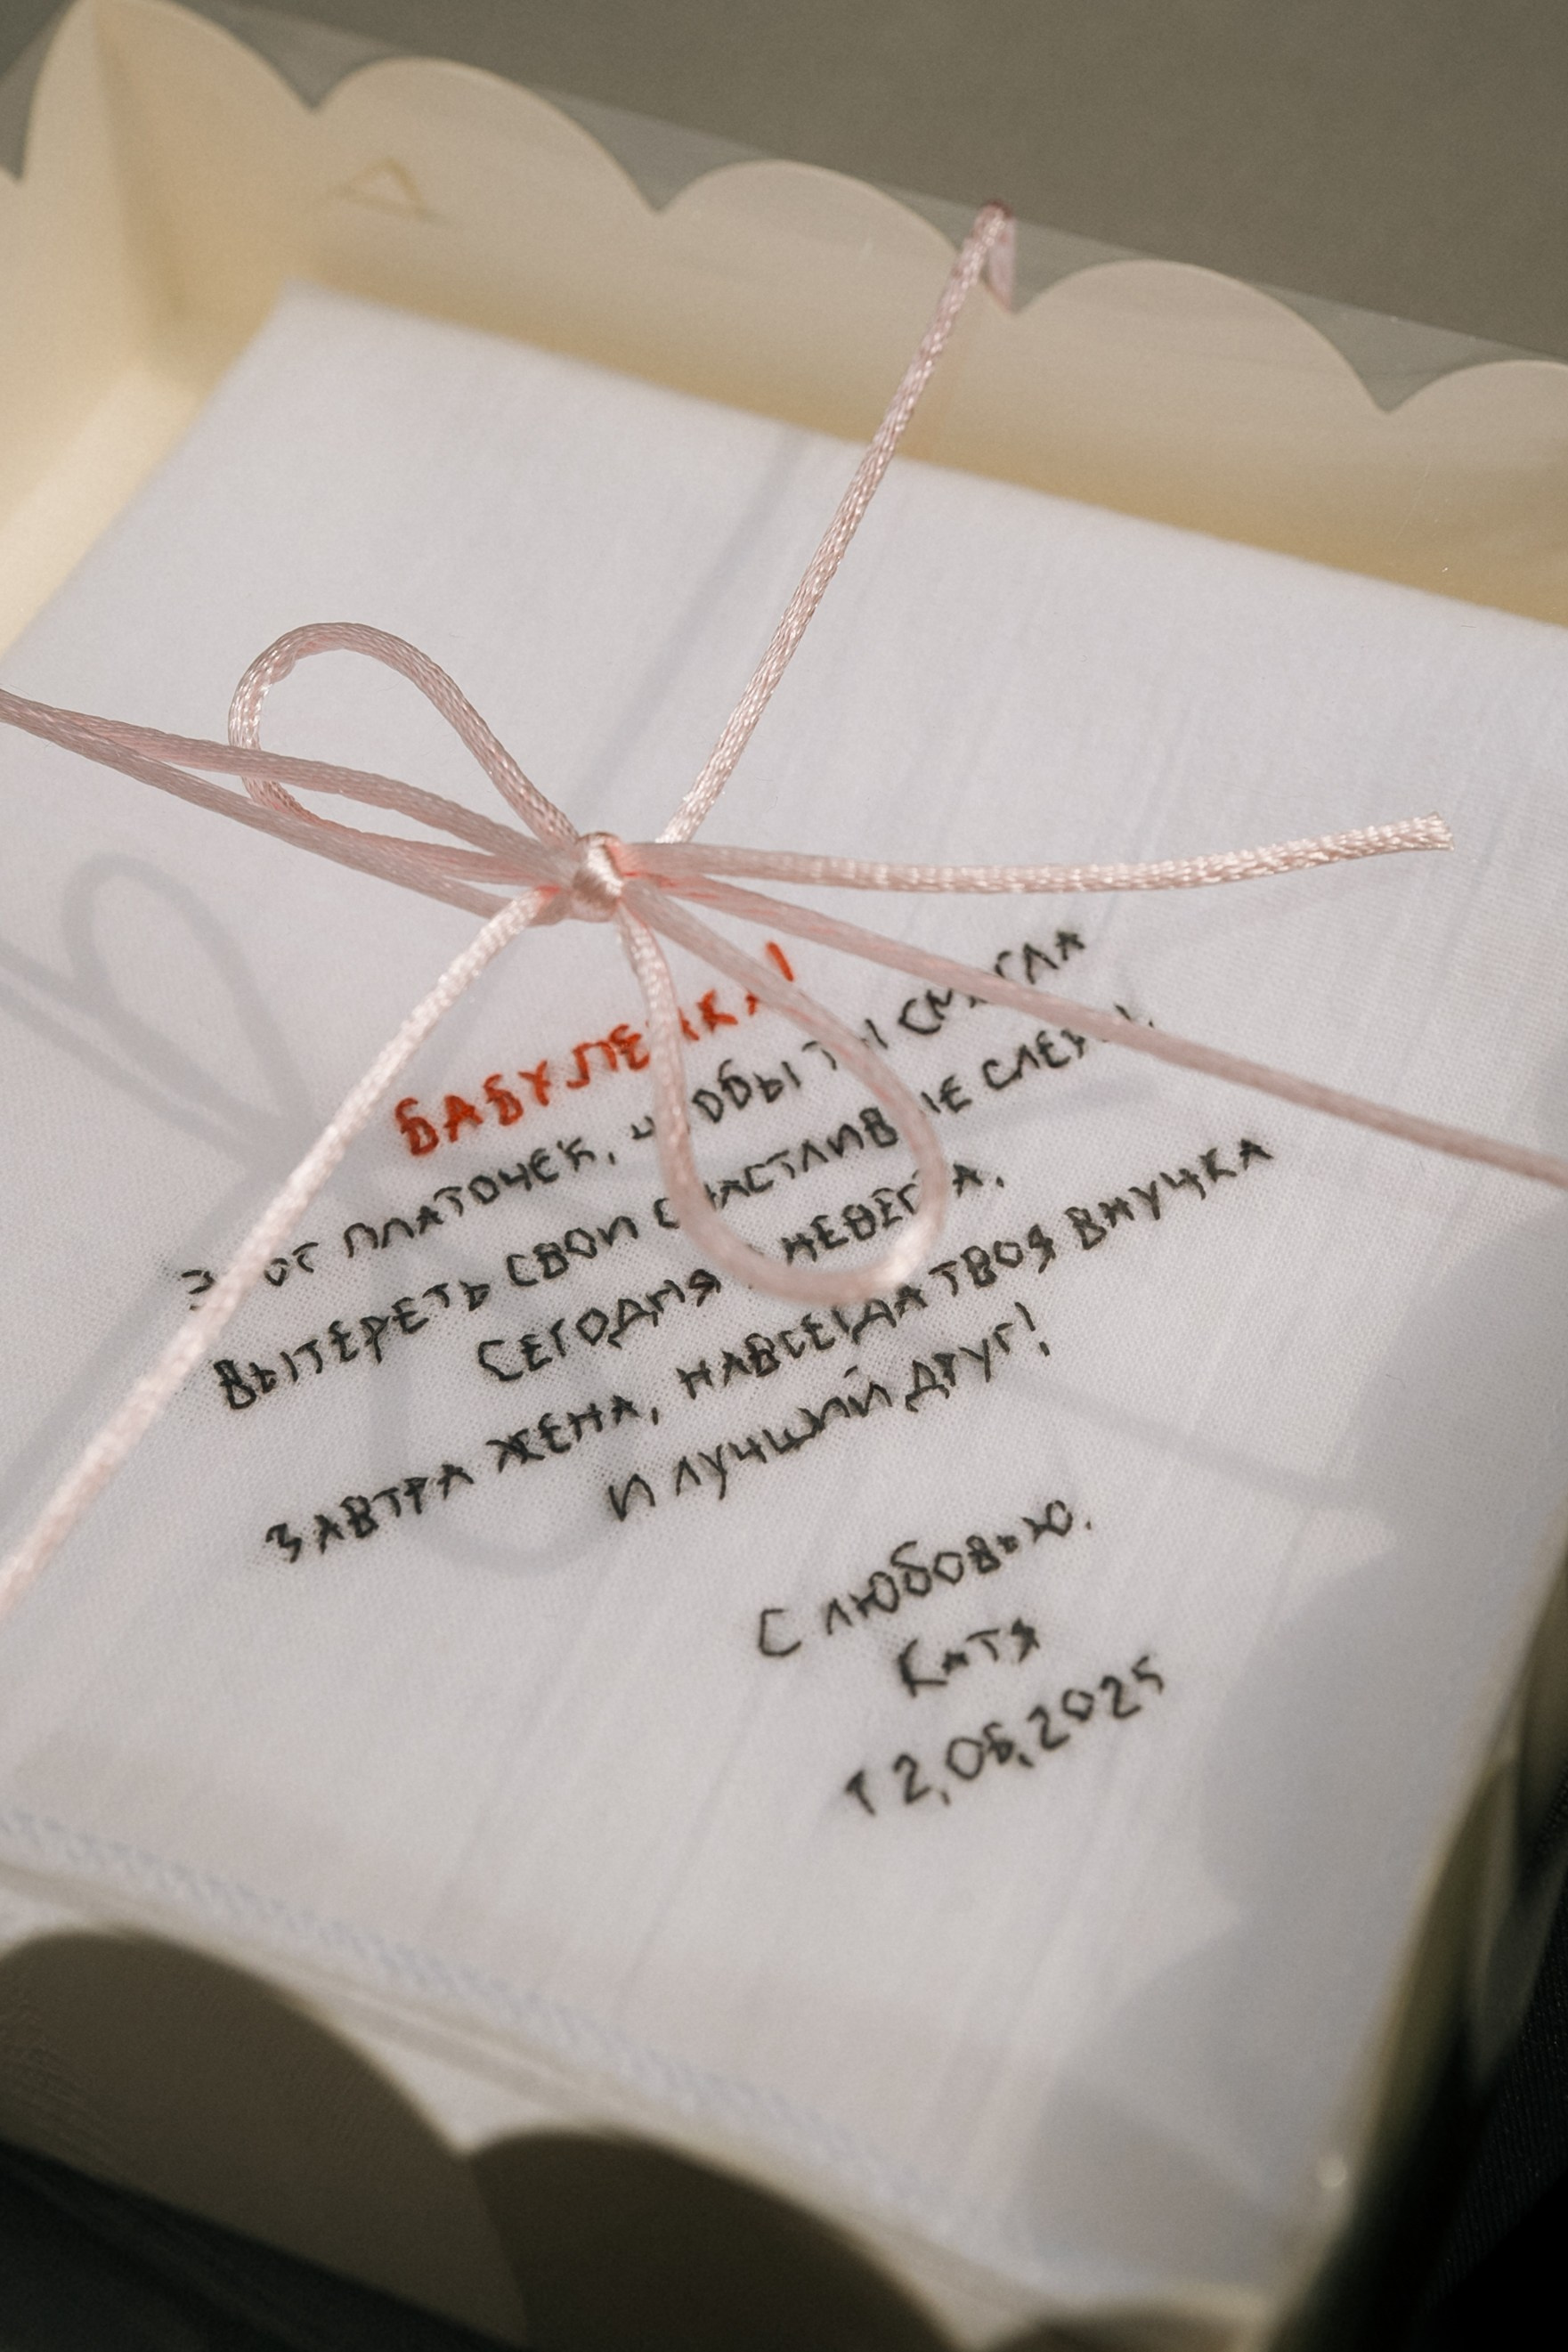 БАБУЛЕЧКА!
ЭТОТ ПЛАТОЧЕК, ЧТОБЫ ТЫ СМОГЛА
ВЫТЕРЕТЬ СВОИ СЧАСТЛИВЫЕ СЛЕЗЫ.
СЕГОДНЯ Я НЕВЕСТА,
ЗАВТРА ЖЕНА, НАВСЕГДА ТВОЯ ВНУЧКА
И ЛУЧШИЙ ДРУГ!
С ЛЮБОВЬЮ.
КАТЯ
12.06.2025